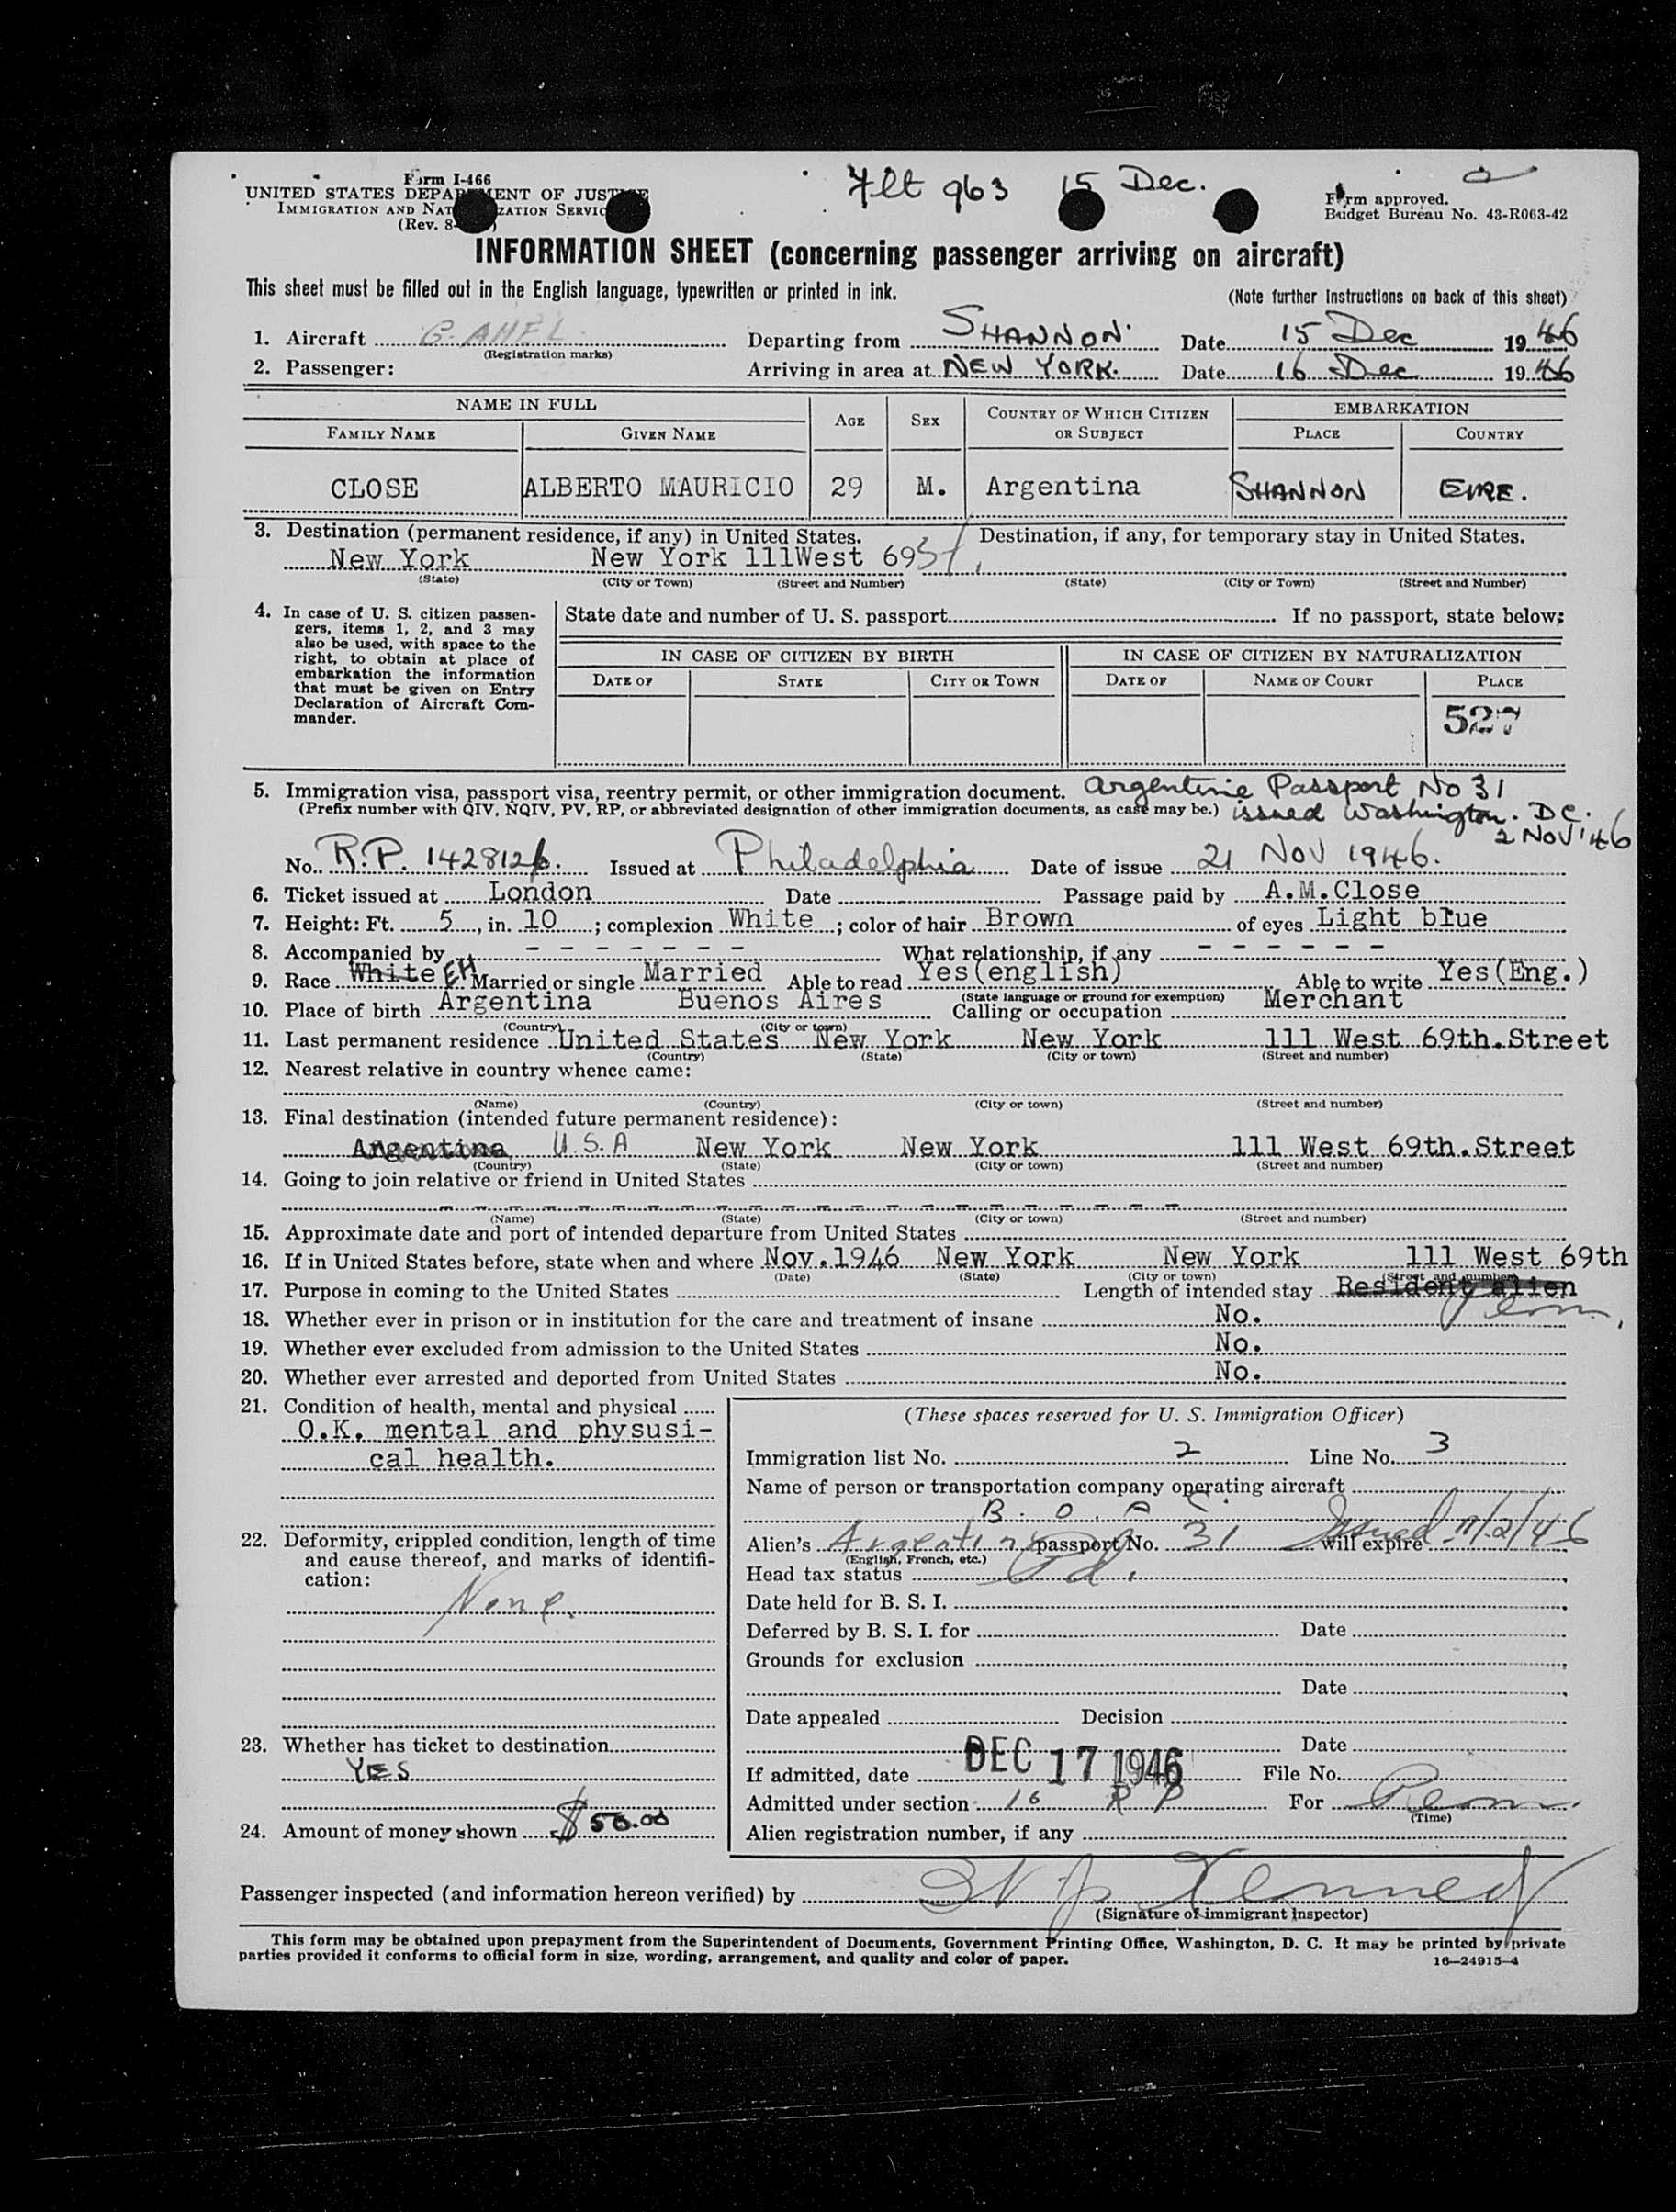 Form I-466
UNITED STATES DEPARTMENT OF JUSTICE
IMMIGRATION AND NATURALIZATION SERVICE
(Rev. 8-
Flt 963 15 Dec.
Form approved.
Budget Bureau No. 43-R063-42
INFORMATION SHEET (concerning passenger arriving on aircraft)
This sheet must be filled out in the English language, typewritten or printed in ink.
(Note further instructions on back of this sheet)
1. Aircraft G-AHEL Departing from SHANNON Date 15 Dec 1946
(Registration marks)
2. Passenger: Arriving in area at NEW YORK. Date 16 Dec 1946
NAME IN FULL AGE SEX COUNTRY OF WHICH CITIZEN OR SUBJECT EMBARKATION
FAMILY NAME GIVEN NAME PLACE COUNTRY
CLOSE ALBERTO MAURICIO 29 M. Argentina SHANNON EIRE.
3. Destination (permanent residence, if any) in United States. Destination, if any, for temporary stay in United States.
New York New York 111West 69 St.
(State) (City or Town) (Street and Number) (State) (City or Town) (Street and Number)
4. In case of U. S. citizen passen-
gers, items 1, 2, and 3 may
also be used, with space to the
right, to obtain at place of
embarkation the information
that must be given on Entry
Declaration of Aircraft Com-
mander.
State date and number of U. S. passport If no passport, state below:
IN CASE OF CITIZEN BY BIRTH IN CASE OF CITIZEN BY NATURALIZATION
DATE OF STATE CITY OR TOWN DATE OF NAME OF COURT PLACE
527
5. Immigration visa, passport visa, reentry permit, or other immigration document. Argentine Passport No 31
(Prefix number with QIV, NQIV, PV, RP, or abbreviated designation of other immigration documents, as case may be.) issued Washington. DC.
2 NOV '46
No. R.P. 1428126. Issued at Philadelphia Date of issue 21 NOV 1946.
6. Ticket issued at London Date Passage paid by A.M.Close
7. Height: Ft. 5, in. 10; complexion White; color of hair Brown of eyes Light blue
8. Accompanied by - - - - - - - What relationship, if any - - - - - -
9. Race White EH Married or single Married Able to read Yes(english) Able to write Yes(Eng.)
(State language or ground for exemption)
10. Place of birth Argentina Buenos Aires Calling or occupation Merchant
(Country) (City or town)
11. Last permanent residence United States New York New York 111 West 69th.Street
(Country) (State) (City or town) (Street and number)
12. Nearest relative in country whence came:
(Name) (Country) (City or town) (Street and number)
13. Final destination (intended future permanent residence):
Argentina U.S.A New York New York 111 West 69th.Street
(Country) (State) (City or town) (Street and number)
14. Going to join relative or friend in United States
(Name) (State) (City or town) (Street and number)
15. Approximate date and port of intended departure from United States
16. If in United States before, state when and where Nov.1946 New York New York 111 West 69th
(Date) (State) (City or town) (Street and number)
17. Purpose in coming to the United States Length of intended stay Resident alien Perm.
18. Whether ever in prison or in institution for the care and treatment of insane No.
19. Whether ever excluded from admission to the United States No.
20. Whether ever arrested and deported from United States No.
21. Condition of health, mental and physical
O.K. mental and physusi-
cal health.
22. Deformity, crippled condition, length of time
and cause thereof, and marks of identifi-
cation:
None.
23. Whether has ticket to destination
YES
24. Amount of money shown $50.00
(These spaces reserved for U. S. Immigration Officer)
Immigration list No. 2 Line No. 3
Name of person or transportation company operating aircraft
B. O. A. C.
Alien's Argentine passport No. 31 will expire Issued 11/2/46
(English, French, etc.)
Head tax status Pd.
Date held for B. S. I.
Deferred by B. S. I. for Date
Grounds for exclusion
Date
Date appealed Decision
Date
If admitted, date DEC 17 1946 File No.
Admitted under section 16 RP For Perm.
(Time)
Alien registration number, if any
Passenger inspected (and information hereon verified) by Kennedy
(Signature of immigrant inspector)
This form may be obtained upon prepayment from the Superintendent of Documents, Government Printing Office, Washington, D. C. It may be printed by private
parties provided it conforms to official form in size, wording, arrangement, and quality and color of paper.
16—24915-4